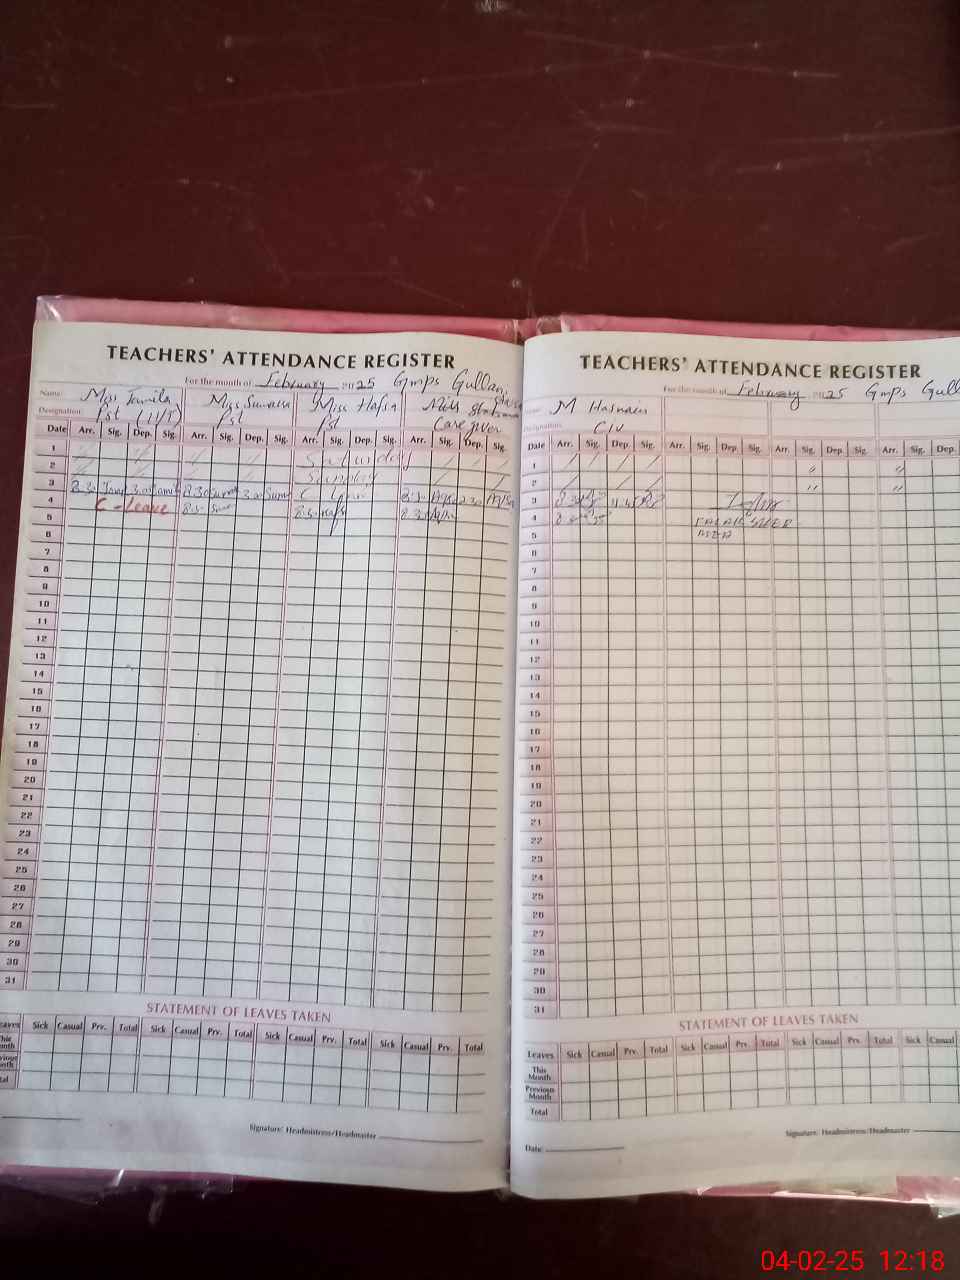 TEACHERS' ATTENDANCE REGISTER
For the month of February 2025 Gmps Gullan
Name: Miss Jamila Miss Sumaira Miss Hafsa Miss
Designation: Pst Pst Pst Care giver
Date Arr. Sig. Dep. Sig. Arr. Sig. Dep. Sig. Arr. Sig. Dep. Sig. Arr. Sig. Dep. Sig.
1 Saturday
2 Sunday
3 8.30 3.00 8.30 3.00 C Leave 8.30 2.30
4 C - Leave 8.30 8.30 8.30
5
6
7
8
9
10
11
12
13
14
15
16
17
18
19
20
21
22
23
24
25
26
27
28
29
30
31
STATEMENT OF LEAVES TAKEN
Leaves Sick Casual Prv. Total Sick Casual Prv. Total Sick Casual Prv. Total Sick Casual Prv. Total
This Month
Previous Month
Total
Signature: Headmistress/Headmaster
TEACHERS' ATTENDANCE REGISTER
For the month of February 2025 Gmps Gull
Name: M Hasnain
Designation: C IV
Date Arr. Sig. Dep. Sig. Arr. Sig. Dep. Sig. Arr. Sig. Dep. Sig. Arr. Sig. Dep.
1 "
2 "
3
4
5
6
7
8
9
10
11
12
13
14
15
16
17
18
19
20
21
22
23
24
25
26
27
28
29
30
31
STATEMENT OF LEAVES TAKEN
Leaves Sick Casual Prv. Total Sick Casual Prv. Total Sick Casual Prv. Total Sick Casual
This Month
Previous Month
Total
Signature: Headmistress/Headmaster
Date
04-02-25 12:18